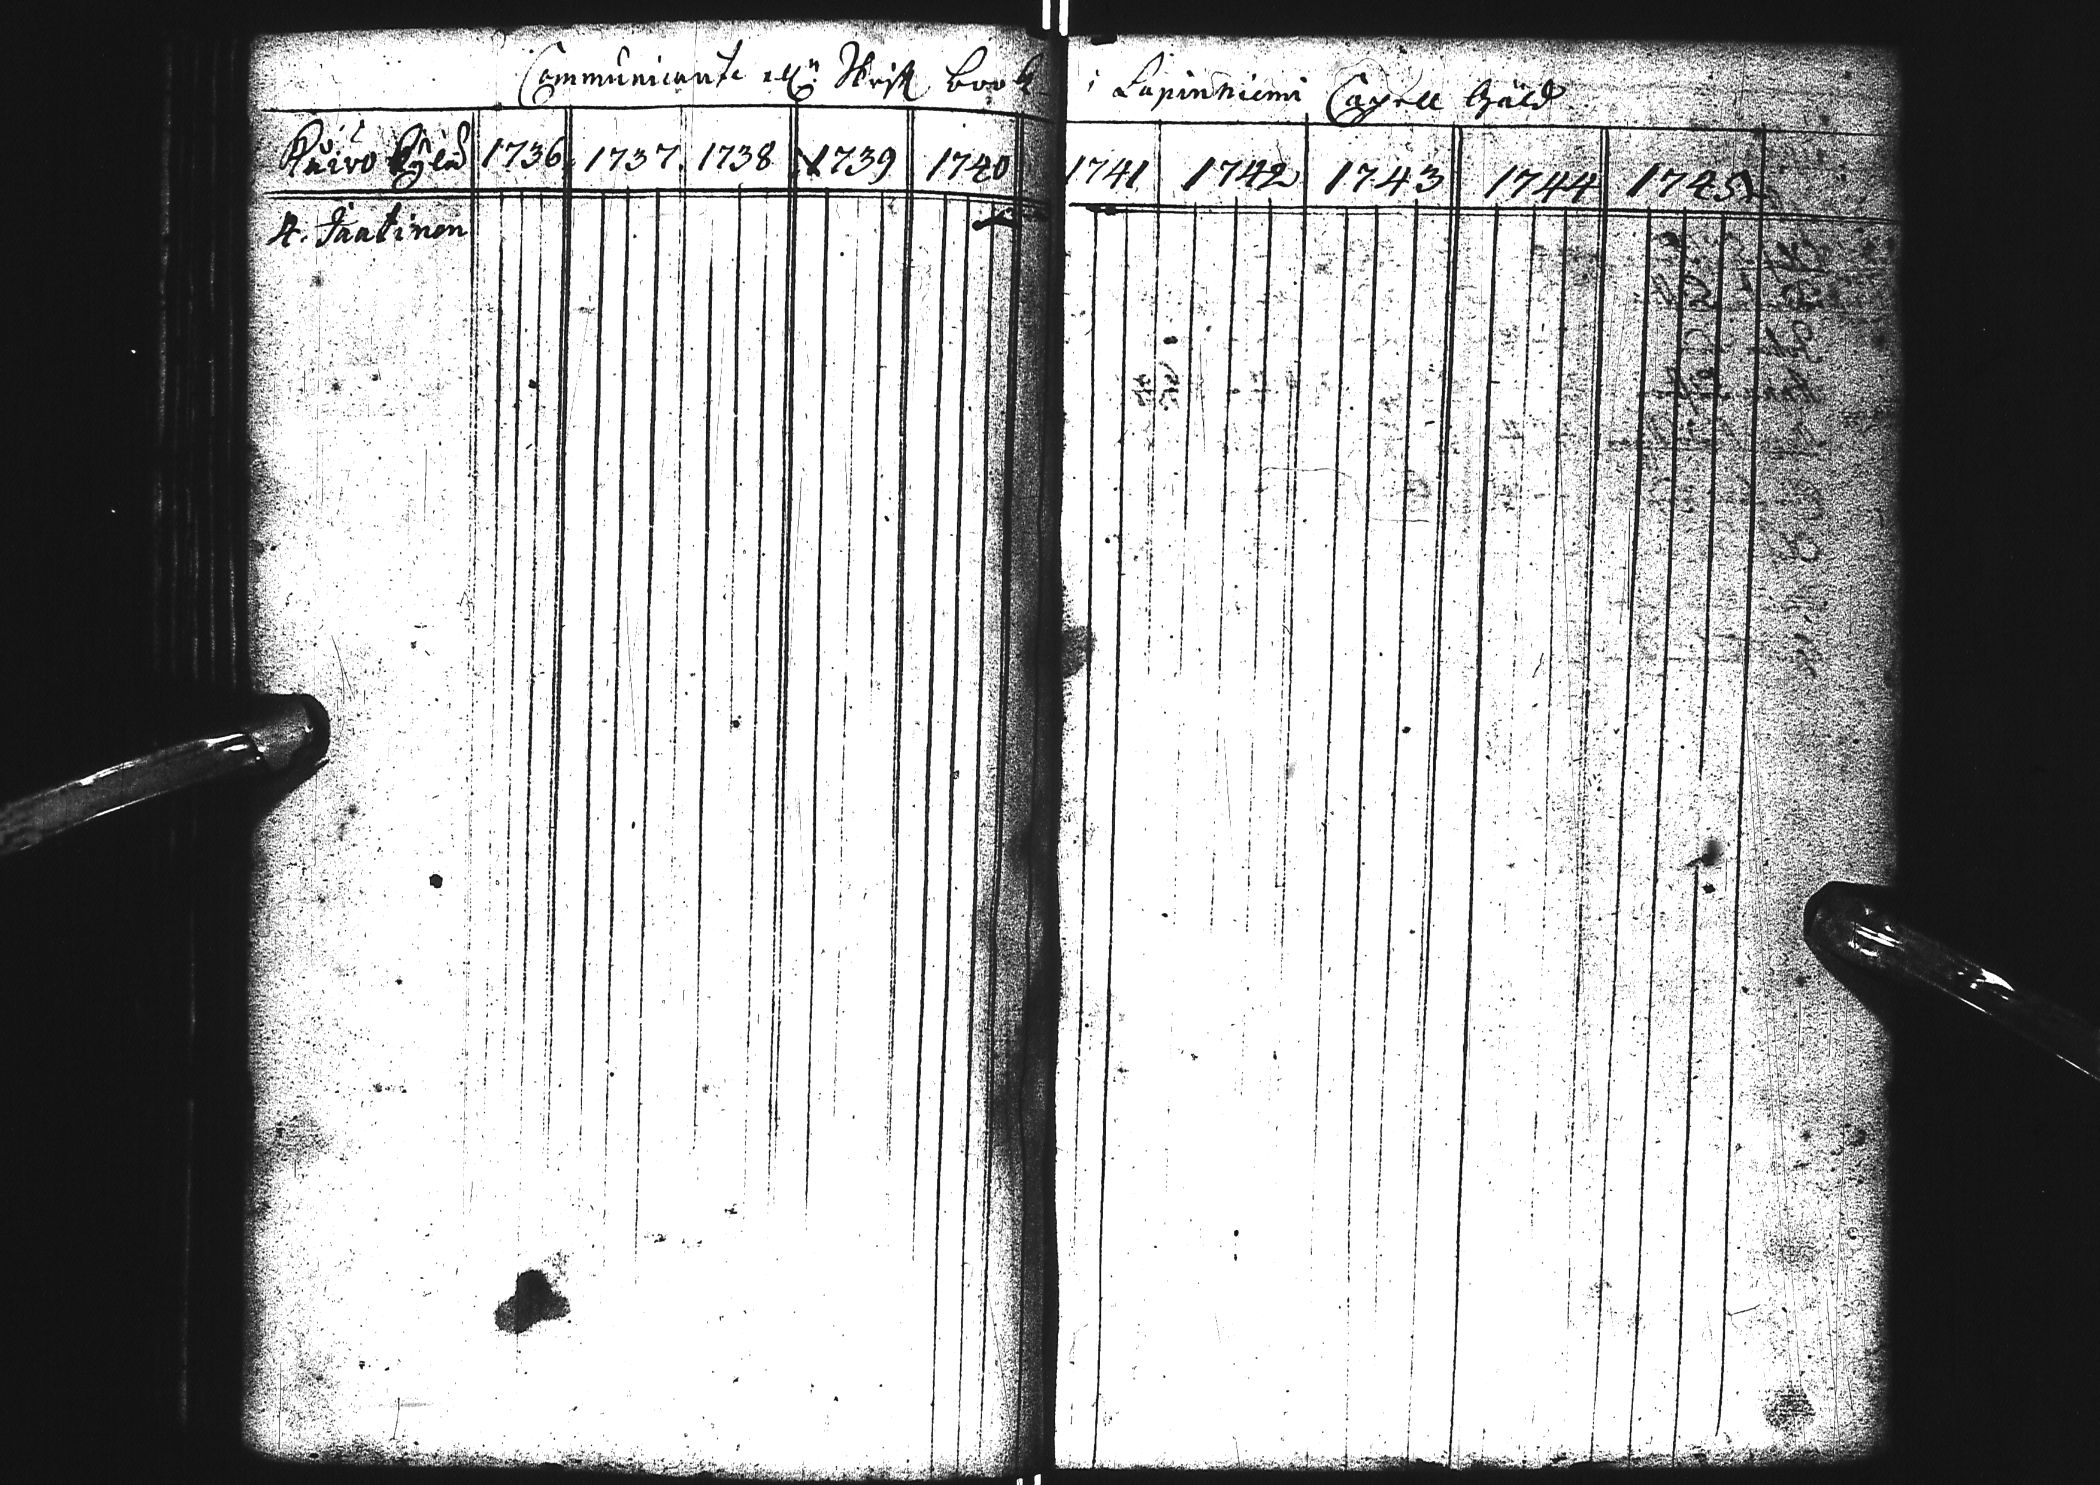 Communicante ell: Skrift book i Lapinniemi Capell Gäld
Råivo Bÿlä 1736 1737 1738 1739 1740 1741 1742 1743 1744 1745
4. Taatinen